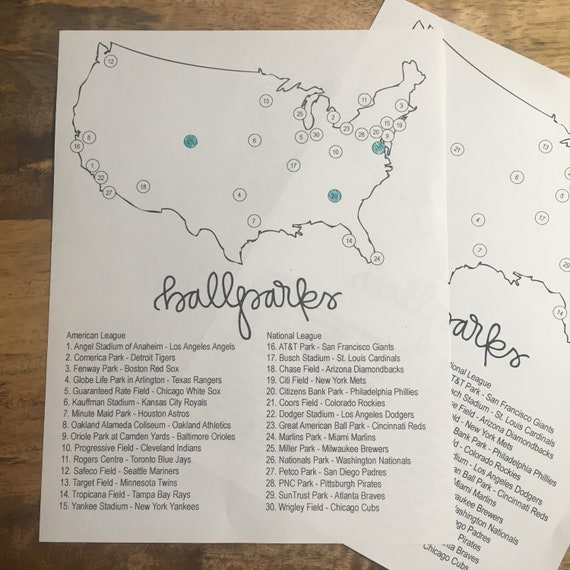 12
13
11
25
3
2
15
19
23
28
20
9
8
5
30
6
16
17
1
22
27
18
4
29
7
14
24
ballparks
American League
1. Angel Stadium of Anaheim - Los Angeles Angels
2. Comerica Park - Detroit Tigers
3. Fenway Park - Boston Red Sox
4. Globe Life Park in Arlington - Texas Rangers
5. Guaranteed Rate Field - Chicago White Sox
6. Kauffman Stadium - Kansas City Royals
7. Minute Maid Park - Houston Astros
8. Oakland Alameda Coliseum - Oakland Athletics
9. Oriole Park at Camden Yards - Baltimore Orioles
10. Progressive Field - Cleveland Indians
11. Rogers Centre - Toronto Blue Jays
12. Safeco Field - Seattle Mariners
13. Target Field - Minnesota Twins
14. Tropicana Field - Tampa Bay Rays
15. Yankee Stadium - New York Yankees
National League
16. AT&T Park - San Francisco Giants
17. Busch Stadium - St. Louis Cardinals
18. Chase Field - Arizona Diamondbacks
19. Citi Field - New York Mets
20. Citizens Bank Park - Philadelphia Phillies
21. Coors Field - Colorado Rockies
22. Dodger Stadium - Los Angeles Dodgers
23. Great American Ball Park - Cincinnati Reds
24. Marlins Park - Miami Marlins
25. Miller Park - Milwaukee Brewers
26. Nationals Park - Washington Nationals
27. Petco Park - San Diego Padres
28. PNC Park - Pittsburgh Pirates
29. SunTrust Park - Atlanta Braves
30. Wrigley Field - Chicago Cubs
21
13
6
4
17
7
29
14
parks
National League
T&T Park - San Francisco Giants
sch Stadium - St. Louis Cardinals
se Field - Arizona Diamondbacks
Field - New York Mets
Bank Park - Philadelphia Phillies
ield - Colorado Rockies
dium - Los Angeles Dodgers
an Ball Park - Cincinnati Reds
Miami Marlins
waukee Brewers
ashington Nationals
go Padres
Pirates
Braves
Chicago Cubs